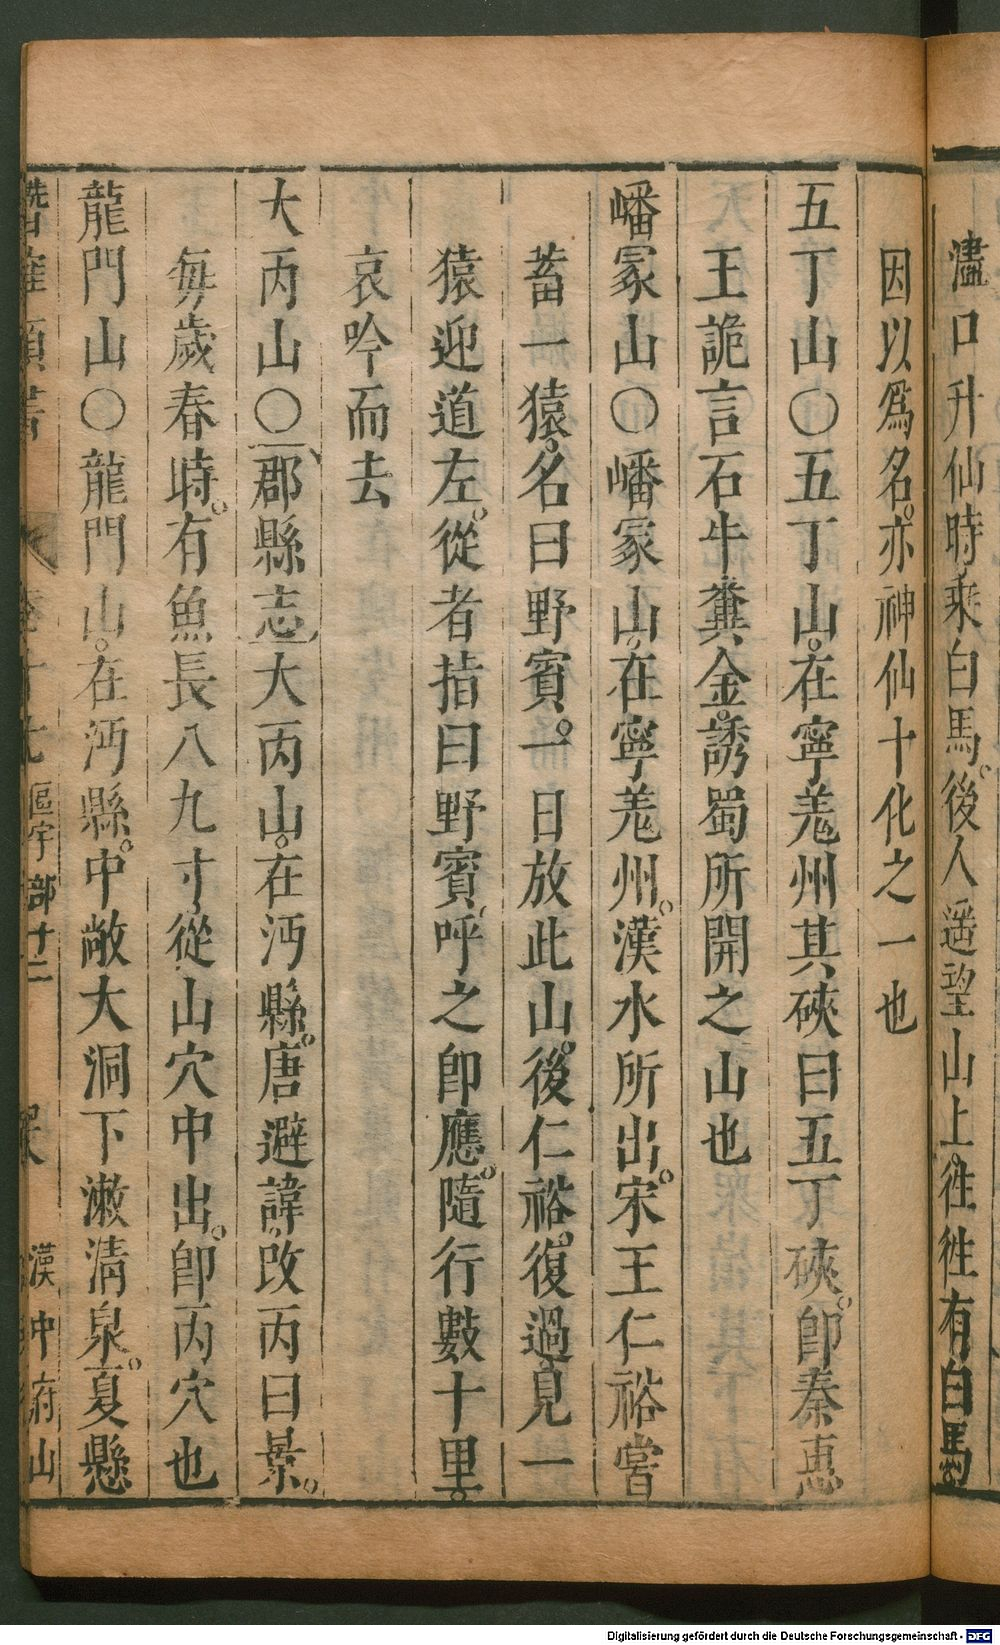 灩口升仙時乘白馬後人遥望山上徃徃有白馬
因以爲名亦神仙十化之一也
五丁山○五丁山在寧羗州其硤曰五丁硤卽秦惠
王詭言石牛糞金誘蜀所開之山也
嶓冢山○嶓冢山在寧羗州漢水所出宋王仁裕嘗
蓄一猿名曰野賓一日放此山後仁裕復過見一
猿迎道左從者指曰野賓呼之卽應隨行數十里
哀吟而去
大丙山○郡縣志大丙山在沔縣唐避諱改丙曰景
每歲春時有魚長八九寸從山穴中出卽丙穴也
龍門山○龍門山在沔縣中敞大洞下漱淸泉夏懸
類書 區宇部廿二 漢中府山
Digitalisierung gefördert durch die Deutsche Forschungsgemeinschaft - DFG